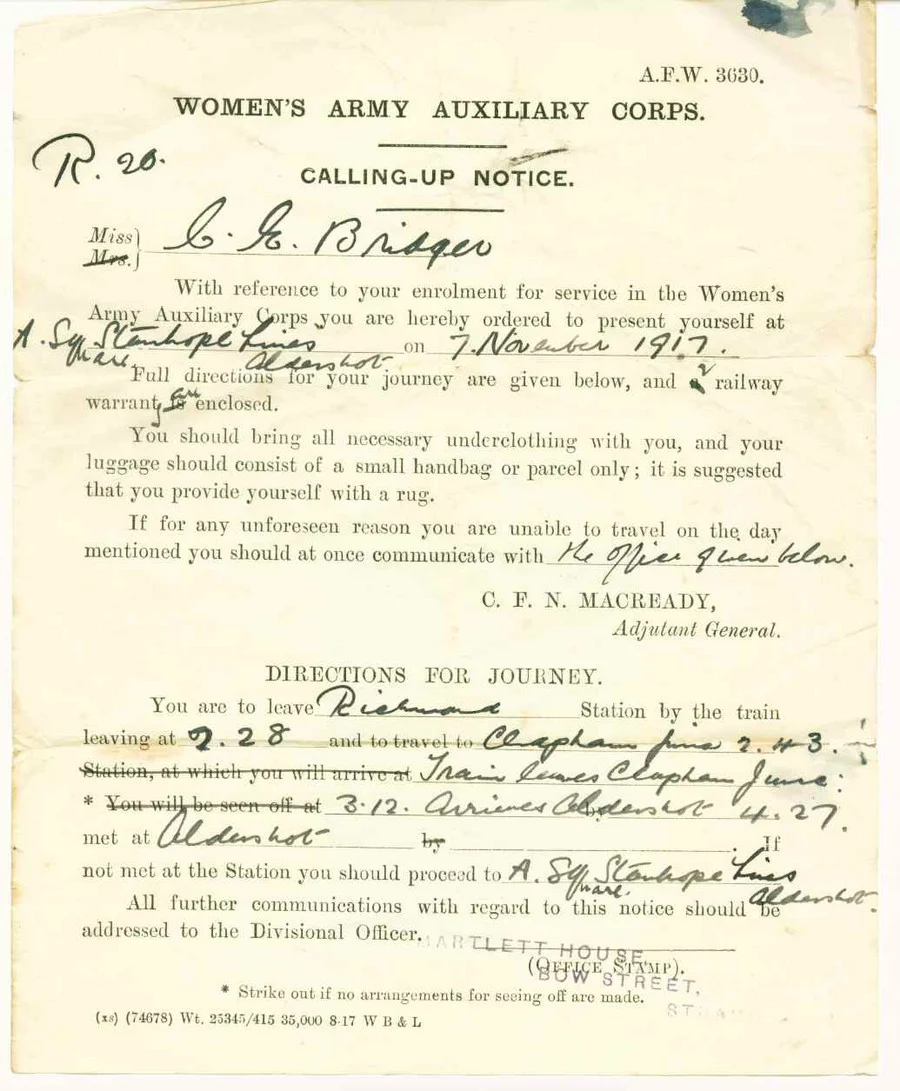 A.F.W. 3630.
WOMEN'S ARMY AUXILIARY CORPS.
R. 20.
CALLING-UP NOTICE.
Miss } C. E. Bridger
Mrs. }
With reference to your enrolment for service in the Women's
Army Auxiliary Corps you are hereby ordered to present yourself at
A. Square Stanhope Lines Aldershot on 7. November 1917.
Full directions for your journey are given below, and a 2 railway
warrants is are enclosed.
You should bring all necessary underclothing with you, and your
luggage should consist of a small handbag or parcel only; it is suggested
that you provide yourself with a rug.
If for any unforeseen reason you are unable to travel on the day
mentioned you should at once communicate with the office given below.
C. F. N. MACREADY,
Adjutant General.
DIRECTIONS FOR JOURNEY.
You are to leave Richmond Station by the train
leaving at 2.28 and to travel to Clapham Junc 2.43.
Station, at which you will arrive at Train leaves Clapham Junc:
* You will be seen off at 3.12. Arrives Aldershot by 4.27.
met at Aldershot by . If
not met at the Station you should proceed to A. Square Stanhope Lines
Aldershot.
All further communications with regard to this notice should be
addressed to the Divisional Officer.
ARTLETT HOUSE
(OFFICE STAMP).
BOW STREET,
* Strike out if no arrangements for seeing off are made.
(xs) (74678) Wt. 25345/415 35,000 8-17 W B & L